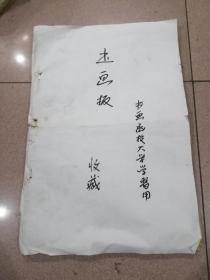 书画报
收藏
书画函授大学学习用